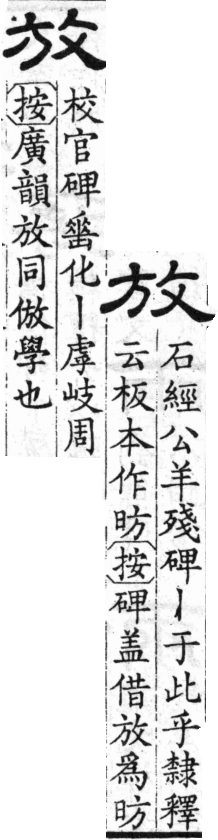 放
校官碑垂化丨虖岐周
按廣韻放同倣學也
放
石經公羊殘碑丨于此乎隸釋
云板本作昉按碑盖借放爲昉